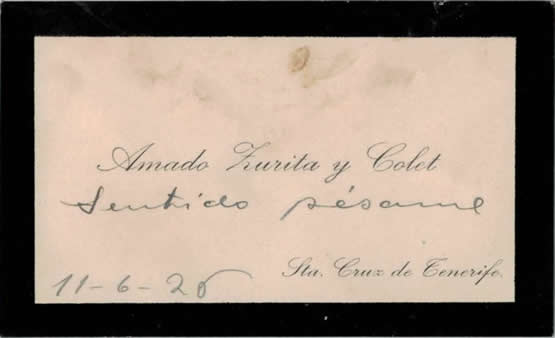 Amado Zurita y Colet
Sentido pésame
Sta. Cruz de Tenerife.
11-6-26